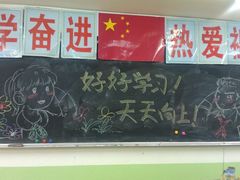 学奋进 热爱祖
好好学习!
天天向上!